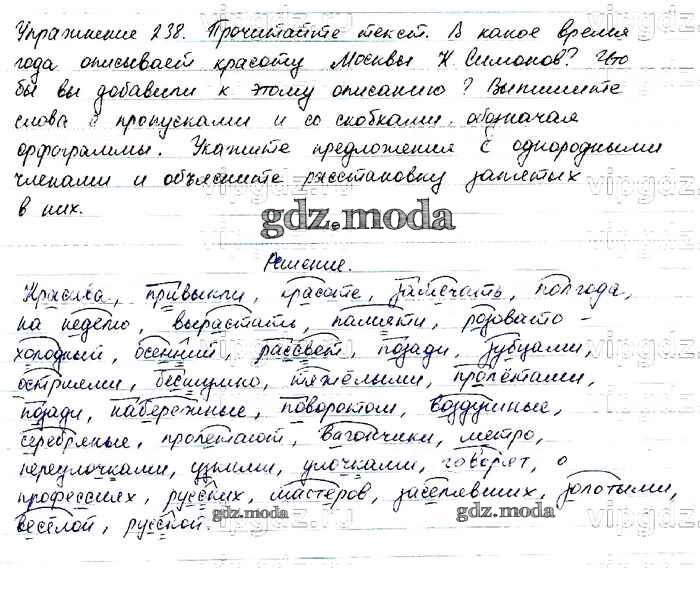 Упражнение 238. Прочитайте текст. В какое время
года описывает красоту Москвы К. Симонов? Что
бы вы добавили к этому описанию? Выпишите
слова с пропусками и со скобками, обозначая
орфограммы. Укажите предложения с однородными
членами и объясните расстановку запятых
в них.
gdz.moda
Решение.
Красива, привыкли, красоте, замечать, полгода,
на неделю, вырастить, памяти, розовато-
холодный, осенний, рассвет, позади, зубцами,
остриями, бесшумно, тяжёлыми, пролётами,
позади, набережные, поворотом, воздушные,
серебряные, пролетают, вагончики, метро,
переулочками, узкими, улочками, говорят, о
профессиях, русских, мастеров, заселивших, золотыми,
весёлой, русской.
gdz.moda
gdz.moda
vipgdz.ru